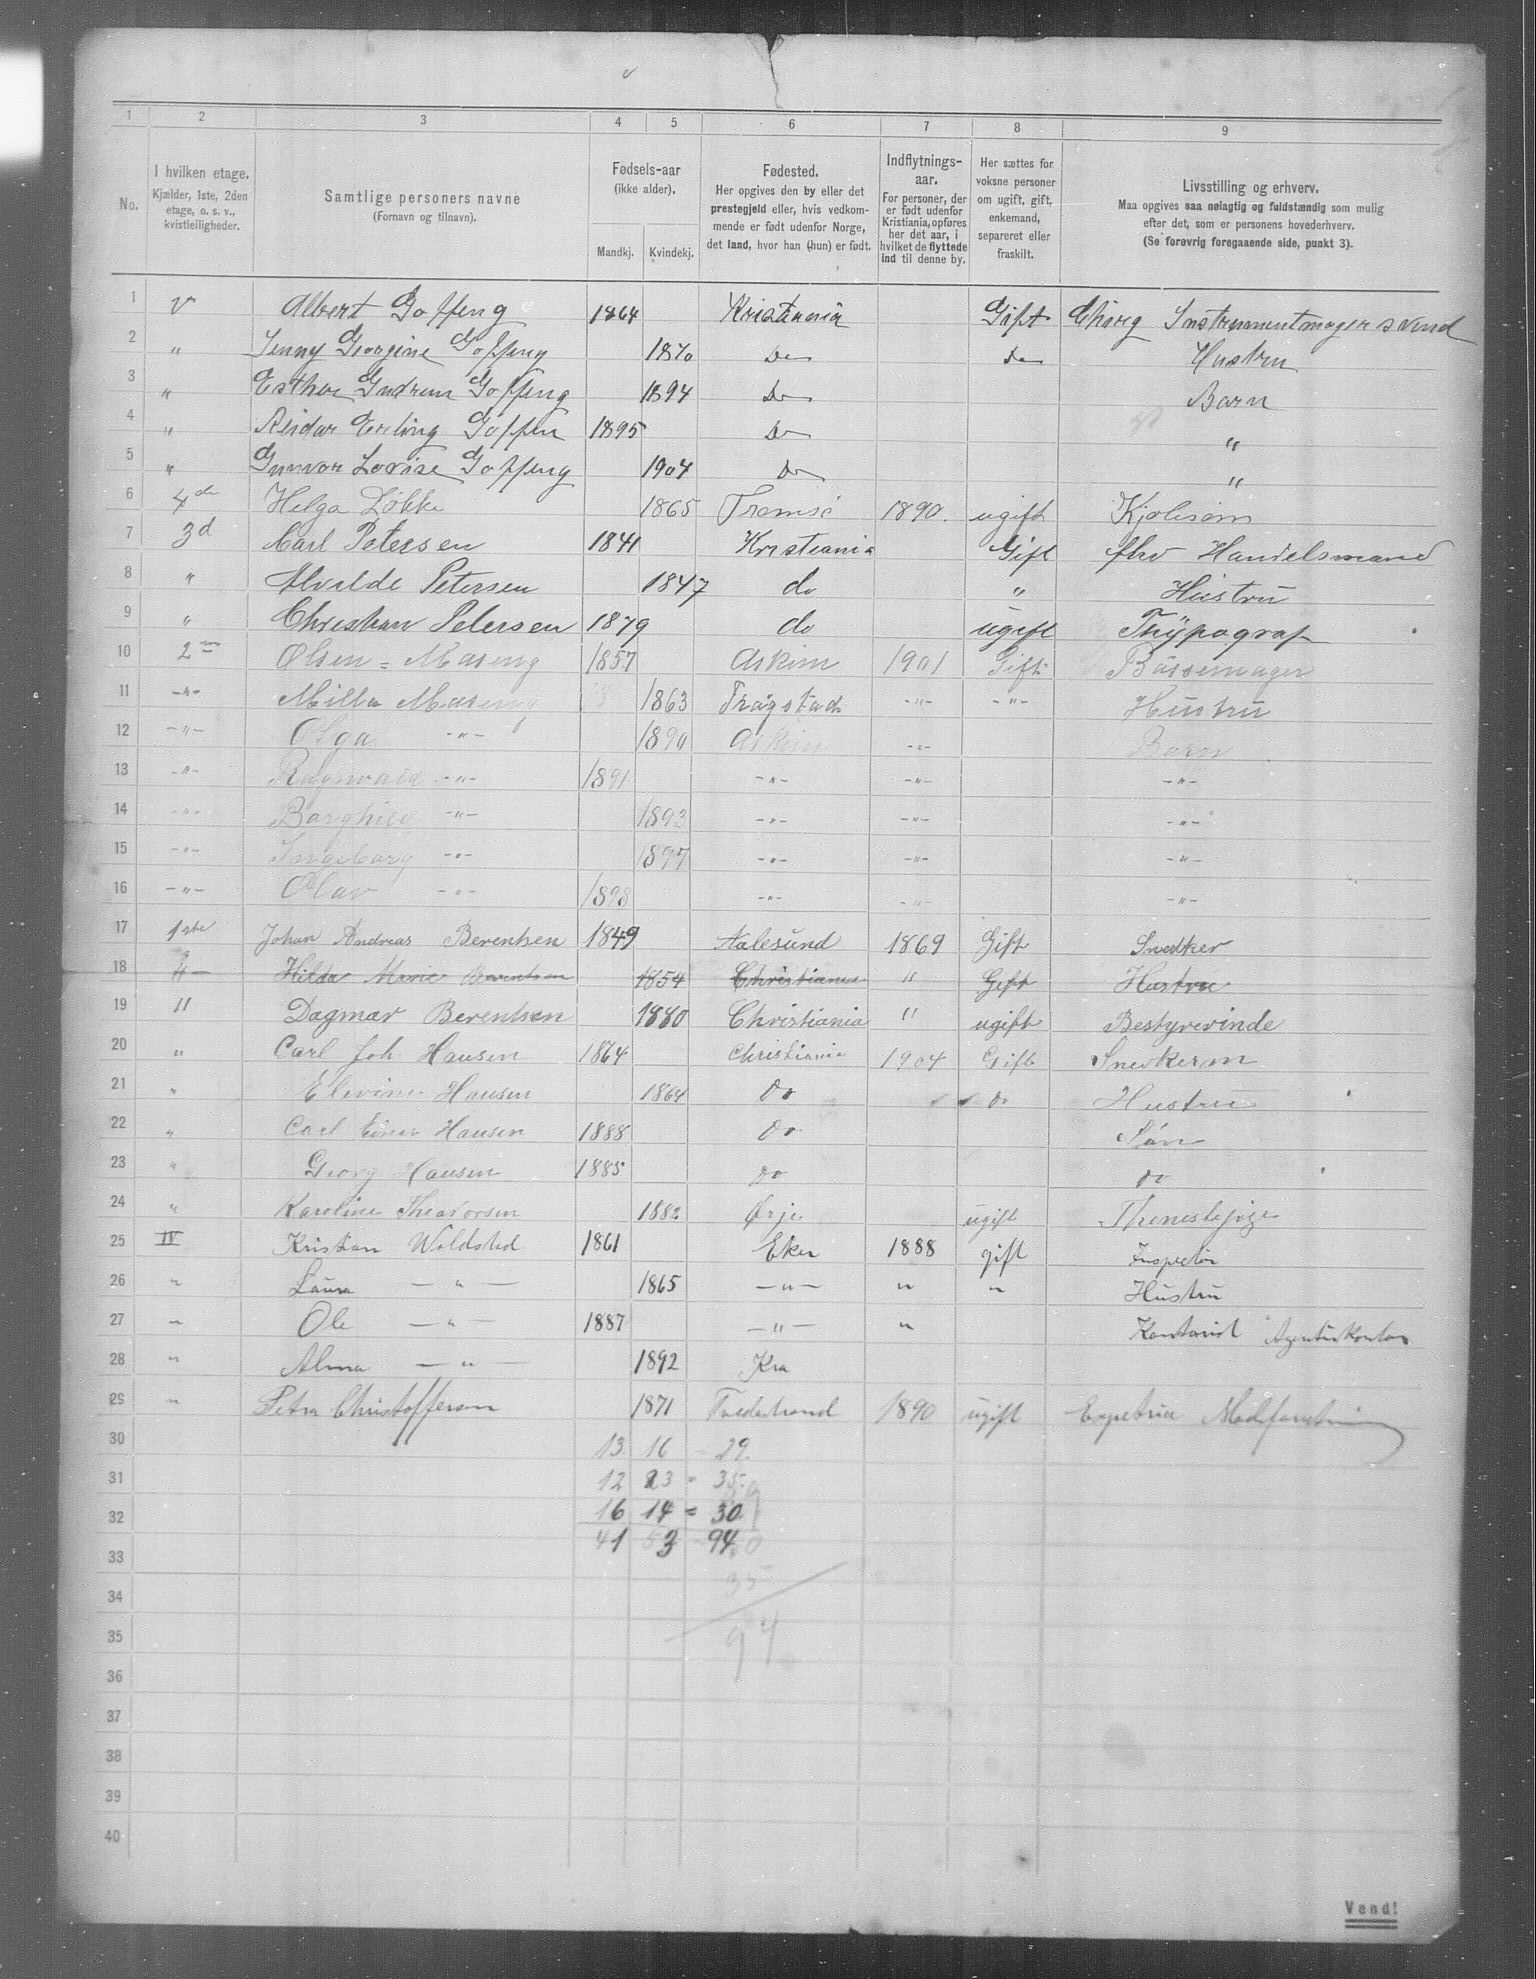 1 2 3 4 5 6 7 8 9
No. I hvilken etage. Kjælder, 1ste, 2den etage, o. s. v., kvistleiligheder. Samtlige personers navne (Fornavn og tilnavn). Fødsels-aar (ikke alder). Mandkj. Kvindekj. Fødested. Her opgives den by eller det prestegjeld eller, hvis vedkommende er født udenfor Norge, det land, hvor han (hun) er født. Indflytnings-aar. For personer, der er født udenfor Kristiania, opføres her det aar, i hvilket de flyttede ind til denne by. Her sættes for voksne personer om ugift, gift, enkemand, separeret eller fraskilt. Livsstilling og erhverv. Maa opgives saa nøiagtig og fuldstændig som mulig efter det, som er personens hovederhverv. (Se forøvrig foregaaende side, punkt 3).
1 V Albert Goffeng 1864 Kristiania Gift Chirg Instrumentmagersvend
2 " Jenny Georgine Goffeng 1870 Do Do Hustru
3 " Esther Gudrun Goffeng 1894 Do Barn
4 " Reidar Erling Goffen 1895 Do "
5 " Gunvor Lovise Goffeng 1904 Do "
6 4de Helga Løkke 1865 Tromsø 1890. ugift Kjolesøm
7 3d Carl Petersen 1841 Kristiania Gift fhv Handelsmand
8 " Alvilde Petersen 1847 do " Hustru
9 " Christian Petersen 1879 do ugift Thypograf
10 2den Olsen = Maseng 1857 Askim 1901 Gift Bøssemager
11 -"- Milla Maseng 1863 Trøgstad -"- -"- Hustru
12 -"- Olga -"- 1890 Askim -"- Barn
13 -"- Ragnvald -"- 1891 -"- -"- -"-
14 -"- Borghild -"- 1893 -"- -"- -"-
15 -"- Ingeborg -"- 1897 -"- -"- -"-
16 -"- Olav -"- 1898 -"- -"- -"-
17 1ste Johan Andreas Berentsen 1849 Aalesund 1869 Gift Snedker
18 " Hilda Marie Berentsen 1854 Christiania " Gift Hustru
19 " Dagmar Berentsen 1880 Christiania " ugift Bestyrerinde
20 " Carl Joh Hansen 1864 Christiania 1904 Gift Snedkerm
21 " Elevine Hansen 1864 Do do Hustru
22 " Carl Einar Hansen 1888 Do Søn
23 " Georg Hansen 1885 Do do
24 " Karoline Theodorsen 1882 Ørje ugift Thenestepige
25 IV Kristian Woldsted 1861 Eker 1888 gift Inspektør
26 " Laura -"- 1865 -"- " " Hustru
27 " Ole -"- 1887 -"- " Kontorist Agenturkontor
28 " Alma -"- 1892 Kra
29 " Petra Christoffersen 1871 Tvedestrand 1890 ugift
30 13 16 - 29.
31 12 23 = 35.
32 16 14 = 30
33 41 53 94
34 35
35 94
36
37
38
39
40
Vend!